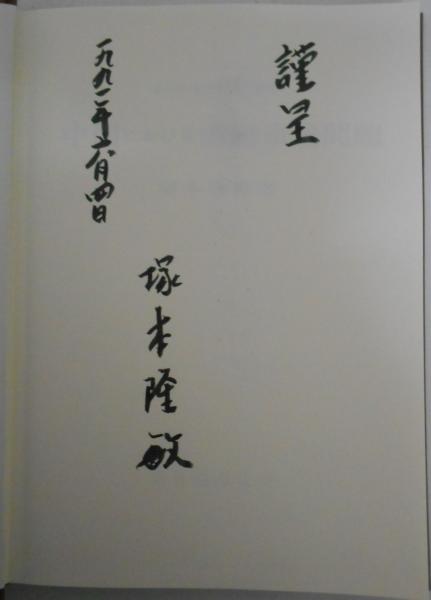 謹呈
塚本隆敏
一九九一年六月四日